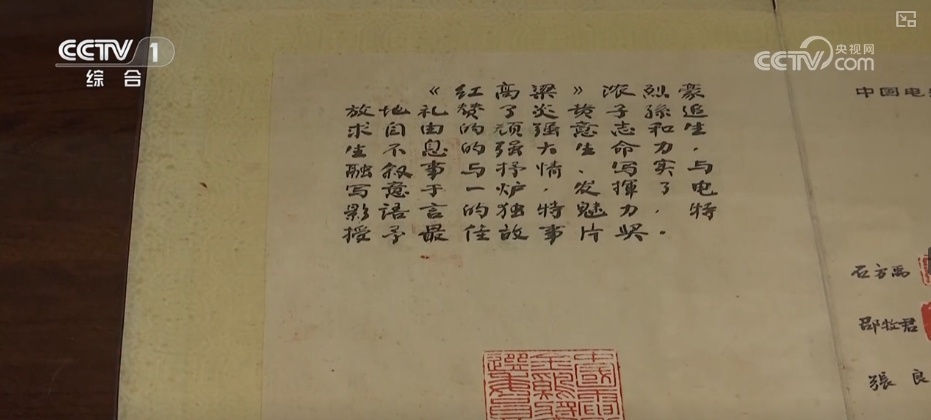 CCTV 1
综合
央视网
CCTV.com
《红高粱》浓烈豪
放地礼赞了炎黄子孙追
求自由的顽强意志和生
生不息的强大生命力，
融叙事与抒情、写实与
写意于一炉，发挥了电
影语言的独特魅力，特
授予最佳故事片奖。
中国电
石方禹
邵牧君
張良